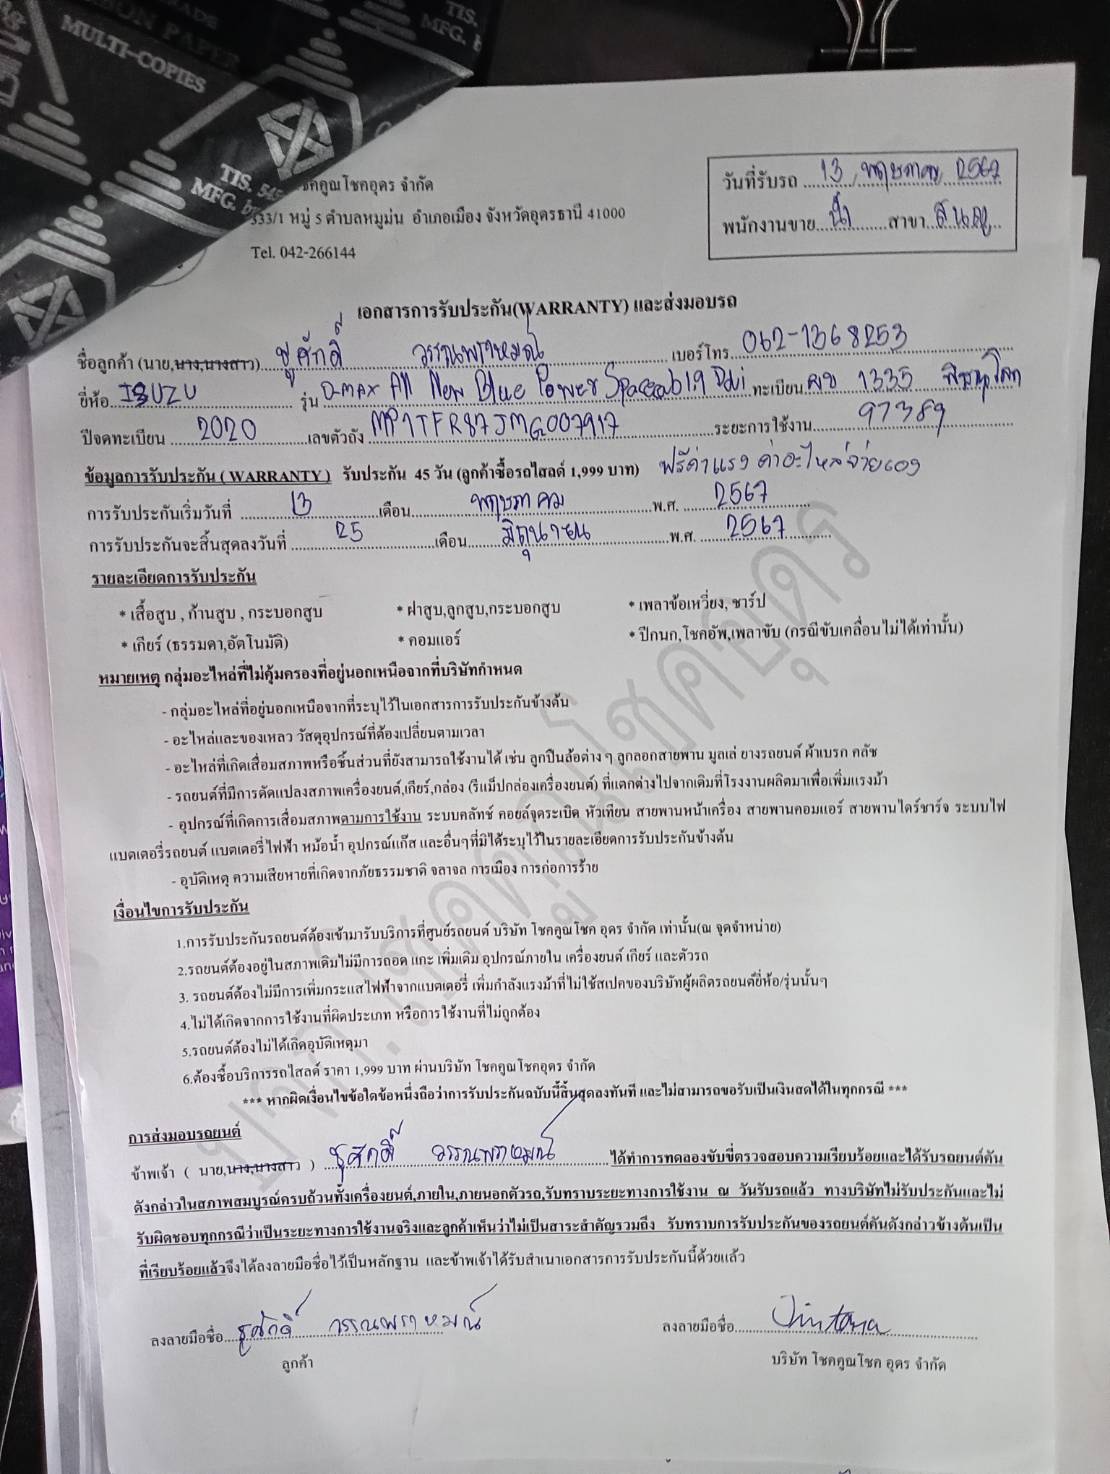 MULTI-COPIES
TIS.
MFG. b
TIS. 545
MFG. b
คคูณโชคอุดร จำกัด
333/1 หมู่ 5 ตำบลหมูม่น อำเภอเมือง จังหวัดอุดรธานี 41000
Tel. 042-266144
วันที่รับรถ 13 พฤษภาคม 2567
พนักงานขาย น้ำ สาขา
เอกสารการรับประกัน(WARRANTY) และส่งมอบรถ
ชื่อลูกค้า (นาย,นาง,นางสาว) ชูศักดิ์ วรรณพราหมณ์ เบอร์โทร 062-1368253
ยี่ห้อ ISUZU รุ่น D-max All New Blue Power Spacecab 1.9 Ddi ทะเบียน 1335 พิษณุโลก
ปีจดทะเบียน 2020 เลขตัวถัง MP1TFR87JMG007917 ระยะการใช้งาน 97389
ข้อมูลการรับประกัน ( WARRANTY ) รับประกัน 45 วัน (ลูกค้าซื้อรถไสลด์ 1,999 บาท) ฟรีค่าแรง ค่าอะไหล่จ่ายเอง
การรับประกันเริ่มวันที่ 13 เดือน พฤษภาคม พ.ศ. 2567
การรับประกันจะสิ้นสุดลงวันที่ 25 เดือน มิถุนายน พ.ศ. 2567
รายละเอียดการรับประกัน
* เสื้อสูบ , ก้านสูบ , กระบอกสูบ * ฝาสูบ,ลูกสูบ,กระบอกสูบ * เพลาข้อเหวี่ยง, ชาร์ป
* เกียร์ (ธรรมดา,อัตโนมัติ) * คอมแอร์ * ปีกนก,โชคอัพ,เพลาขับ (กรณีขับเคลื่อนไม่ได้เท่านั้น)
หมายเหตุ กลุ่มอะไหล่ที่ไม่คุ้มครองที่อยู่นอกเหนือจากที่บริษัทกำหนด
- กลุ่มอะไหล่ที่อยู่นอกเหนือจากที่ระบุไว้ในเอกสารการรับประกันข้างต้น
- อะไหล่และของเหลว วัสดุอุปกรณ์ที่ต้องเปลี่ยนตามเวลา
- อะไหล่ที่เกิดเสื่อมสภาพหรือชิ้นส่วนที่ยังสามารถใช้งานได้ เช่น ลูกปืนล้อต่าง ๆ ลูกลอกสายพาน มูลเล่ ยางรถยนต์ ผ้าเบรก คลัช
- รถยนต์ที่มีการดัดแปลงสภาพเครื่องยนต์,เกียร์,กล่อง (รีแม็ปกล่องเครื่องยนต์) ที่แตกต่างไปจากเดิมที่โรงงานผลิตมาเพื่อเพิ่มแรงม้า
- อุปกรณ์ที่เกิดการเสื่อมสภาพตามการใช้งาน ระบบคลัทช์ คอยล์จุดระเบิด หัวเทียน สายพานหน้าเครื่อง สายพานคอมแอร์ สายพานไดร์ชาร์จ ระบบไฟ
แบตเตอรี่รถยนต์ แบตเตอรี่ไฟฟ้า หม้อน้ำ อุปกรณ์แก๊ส และอื่นๆที่มิได้ระบุไว้ในรายละเอียดการรับประกันข้างต้น
- อุบัติเหตุ ความเสียหายที่เกิดจากภัยธรรมชาติ จลาจล การเมือง การก่อการร้าย
เงื่อนไขการรับประกัน
1.การรับประกันรถยนต์ต้องเข้ามารับบริการที่ศูนย์รถยนต์ บริษัท โชคคูณโชค อุดร จำกัด เท่านั้น(ณ จุดจำหน่าย)
2.รถยนต์ต้องอยู่ในสภาพเดิมไม่มีการถอด แกะ เพิ่มเติม อุปกรณ์ภายใน เครื่องยนต์ เกียร์ และตัวรถ
3. รถยนต์ต้องไม่มีการเพิ่มกระแสไฟฟ้าจากแบตเตอรี่ เพิ่มกำลังแรงม้าที่ไม่ใช้สเปคของบริษัทผู้ผลิตรถยนต์ยี่ห้อ/รุ่นนั้นๆ
4.ไม่ได้เกิดจากการใช้งานที่ผิดประเภท หรือการใช้งานที่ไม่ถูกต้อง
5.รถยนต์ต้องไม่ได้เกิดอุบัติเหตุมา
6.ต้องซื้อบริการรถไสลด์ ราคา 1,999 บาท ผ่านบริษัท โชคคูณโชคอุดร จำกัด
*** หากผิดเงื่อนไขข้อใดข้อหนึ่งถือว่าการรับประกันฉบับนี้สิ้นสุดลงทันที และไม่สามารถขอรับเป็นเงินสดได้ในทุกกรณี ***
การส่งมอบรถยนต์
ข้าพเจ้า ( นาย,นาง,นางสาว ) ชูศักดิ์ วรรณพราหมณ์ ได้ทำการทดลองขับขี่ตรวจสอบความเรียบร้อยและได้รับรถยนต์คัน
ดังกล่าวในสภาพสมบูรณ์ครบถ้วนทั้งเครื่องยนต์,ภายใน,ภายนอกตัวรถ,รับทราบระยะทางการใช้งาน ณ วันรับรถแล้ว ทางบริษัทไม่รับประกันและไม่
รับผิดชอบทุกกรณีว่าเป็นระยะทางการใช้งานจริงและลูกค้าเห็นว่าไม่เป็นสาระสำคัญรวมถึง รับทราบการรับประกันของรถยนต์คันดังกล่าวข้างต้นเป็น
ที่เรียบร้อยแล้วจึงได้ลงลายมือชื่อไว้เป็นหลักฐาน และข้าพเจ้าได้รับสำเนาเอกสารการรับประกันนี้ด้วยแล้ว
ลงลายมือชื่อ ชูศักดิ์ วรรณพราหมณ์ ลงลายมือชื่อ Jintana
ลูกค้า บริษัท โชคคูณโชค อุดร จำกัด
บจก.โชคคูณโชคอุดร